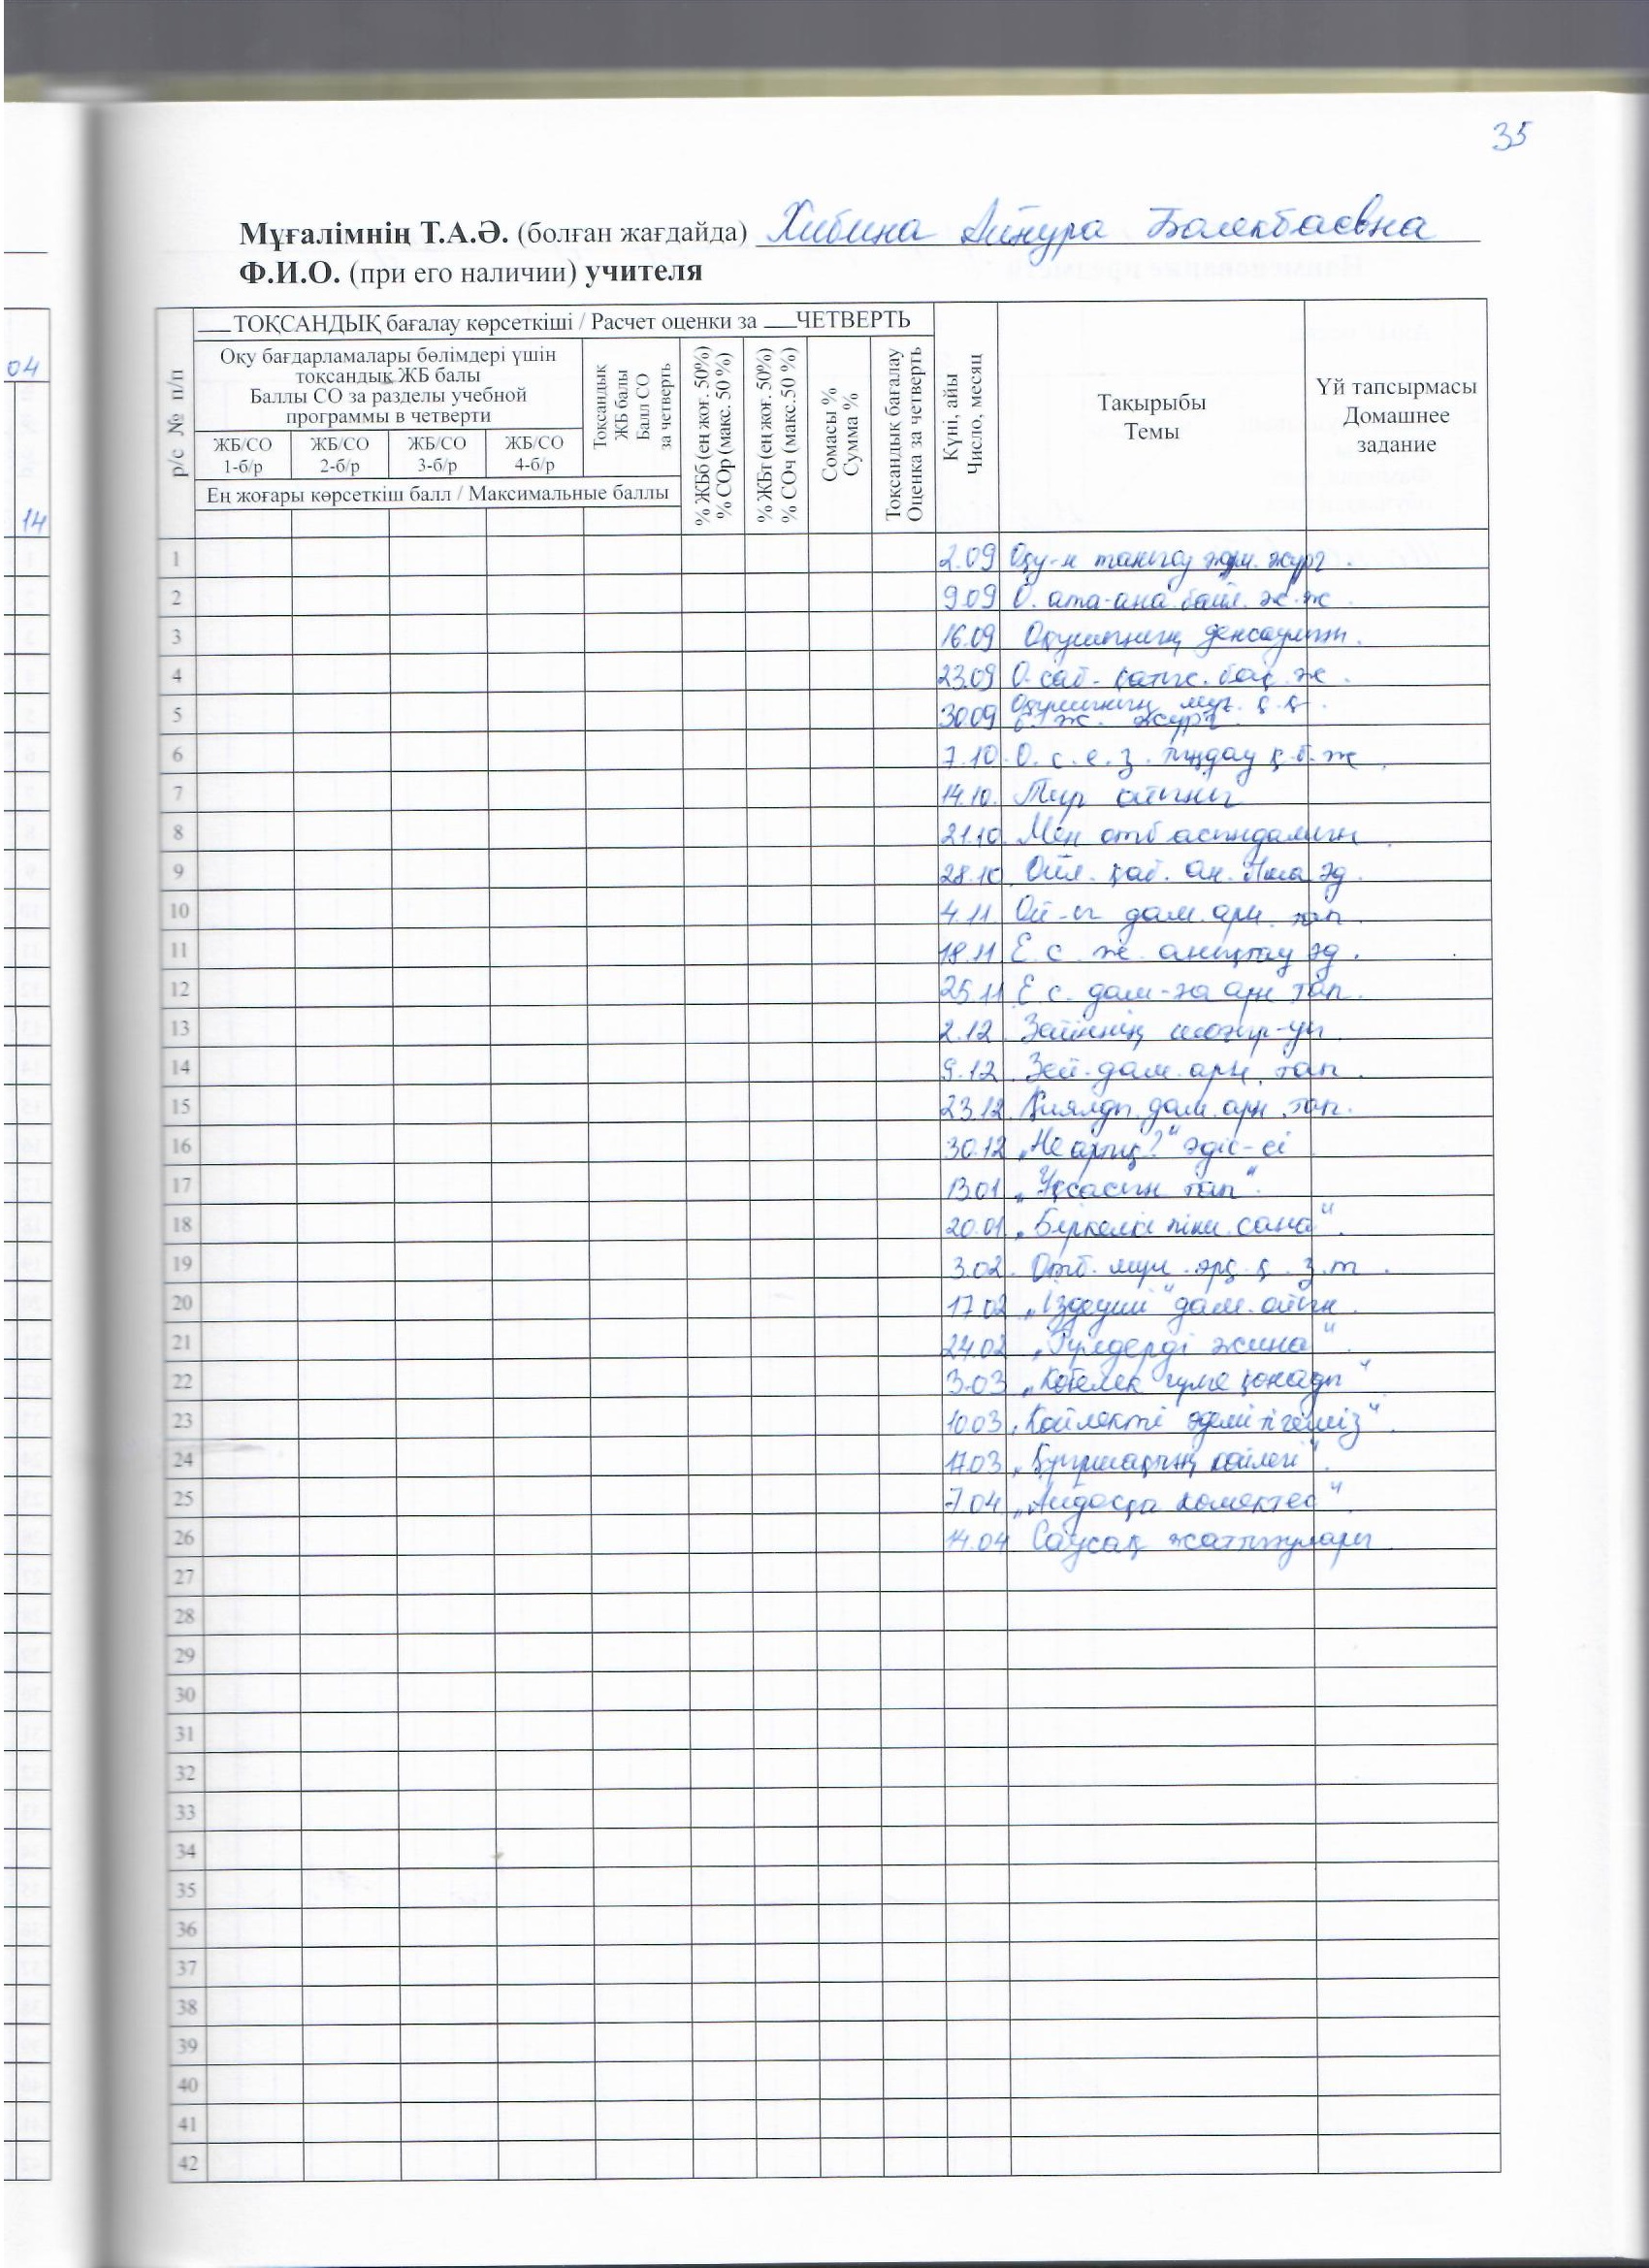 35
Мұғалімнің Т.А.Ә. (болған жағдайда) Хибина Айнура Болекбаевна
Ф.И.О. (при его наличии) учителя
04
14
р/с № п/п
___ТОҚСАНДЫҚ бағалау көрсеткіші / Расчет оценки за ___ЧЕТВЕРТЬ
Оқу бағдарламалары бөлімдері үшін
тоқсандық ЖБ балы
Баллы СО за разделы учебной
программы в четверти
ЖБ/СО 1-б/р
ЖБ/СО 2-б/р
ЖБ/СО 3-б/р
ЖБ/СО 4-б/р
Ең жоғары көрсеткіш балл / Максимальные баллы
Тоқсандық
ЖБ балы
Балл СО
за четверть
% ЖБб (ең жоғ. 50%)
% СОр (макс. 50 %)
% ЖБт (ең жоғ. 50%)
% СОч (макс.50 %)
Сомасы %
Сумма %
Тоқсандық бағалау
Оценка за четверть
Күні, айы
Число, месяц
Тақырыбы
Темы
Үй тапсырмасы
Домашнее
задание
1 2.09 Оқу-н танысу жұм. жүрг.
2 9.09 О. ата-ана байл. ж.ж.
3 16.09 Оқушының денсаулығы.
4 23.09 О. саб. қатыс. бақ. ж.
5 30.09 Оқушының мұғ. қ.қ.
б. ж. жүрг.
6 7.10. О. с. е. з. тыңдау қ.б.ж.
7 14.10. Түр ойыны
8 21.10 Мен отбасындамын
9 28.10. Ойл. қаб. ан. Н-ша әд.
10 4.11. Ой-ы дам. арн. тап.
11 18.11 Е. с. ж. анықтау әд.
12 25.11 Е. с. дам-ға арн. тап.
13 2.12. Зейіннің шоғыр-уы
14 9.12. Зей. дам. арн. тап.
15 23.12. Қиялды дам. арн. тап.
16 30.12 „Не артық?" әдіс-сі
17 13.01 „Ұқсасын тап".
18 20.01. „Біркелкі піш. сана".
19 3.02. Отб. мүш. арқ. қ. з. т.
20 17.02 „Іздеуші" дам. ойын.
21 24.02 „Гүлдерді жина".
22 3.03 „Көбелек гүлге қонады"
23 10.03 „Көйлекті әдемі тігеміз".
24 17.03 „Қуыршақтың көйлегі".
25 7.04. „Айдосқа көмектес".
26 14.04 Саусақ жаттығулары
27
28
29
30
31
32
33
34
35
36
37
38
39
40
41
42